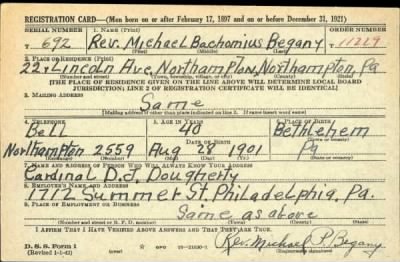 REGISTRATION CARD—(Men born on or after February 17, 1897 and on or before December 31, 1921)
SERIAL NUMBER 1. NAME (Print) ORDER NUMBER
T 692 Rev. Michael Bachomius Begany 11729
2. PLACE OF RESIDENCE (Print)
22 Lincoln Ave. Northampton, Northampton, Pa
(Number and street) (Town, township, village, or city) (County) (State)
[THE PLACE OF RESIDENCE GIVEN ON THE LINE ABOVE WILL DETERMINE LOCAL BOARD
JURISDICTION; LINE 2 OF REGISTRATION CERTIFICATE WILL BE IDENTICAL]
3. MAILING ADDRESS
Same
[Mailing address if other than place indicated on line 2. If same insert word same]
4. TELEPHONE 5. AGE IN YEARS 6. PLACE OF BIRTH
Bell 40 Bethlehem
DATE OF BIRTH
Northampton 2559 Aug 28 1901 Pa
(Exchange) (Number) (Mo.) (Day) (Yr.) (State or country)
7. NAME AND ADDRESS OF PERSON WHO WILL ALWAYS KNOW YOUR ADDRESS
Cardinal D.J. Dougherty
8. EMPLOYER'S NAME AND ADDRESS
1712 Summer St. Philadelphia, Pa.
9. PLACE OF EMPLOYMENT OR BUSINESS
Same as above
(Number and street or R. F. D. number) (Town) (County) (State)
I AFFIRM THAT I HAVE VERIFIED ABOVE ANSWERS AND THAT THEY ARE TRUE.
D. S. S. Form 1
(Revised 1-1-42) (over) GPO Rev. Michael P. Begany